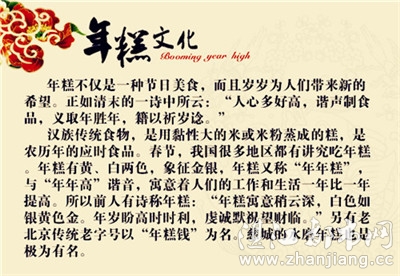 年糕文化
Booming year high
年糕不仅是一种节日美食，而且岁岁为人们带来新的
希望。正如清末的一诗中所云：“人心多好高，谐声制食
品，义取年胜年，籍以祈岁谂。”
汉族传统食物，是用黏性大的米或米粉蒸成的糕，是
农历年的应时食品。春节，我国很多地区都有讲究吃年糕
。年糕有黄、白两色，象征金银，年糕又称“年年糕”，
与“年年高”谐音，寓意着人们的工作和生活一年比一年
提高。所以前人有诗称年糕：“年糕寓意稍云深，白色如
银黄色金。年岁盼高时时利，虔诚默祝望财临。”另有老
北京传统老字号以“年糕钱”为名。城的水磨年糕
极为有名。
www.zhanjiang.cc